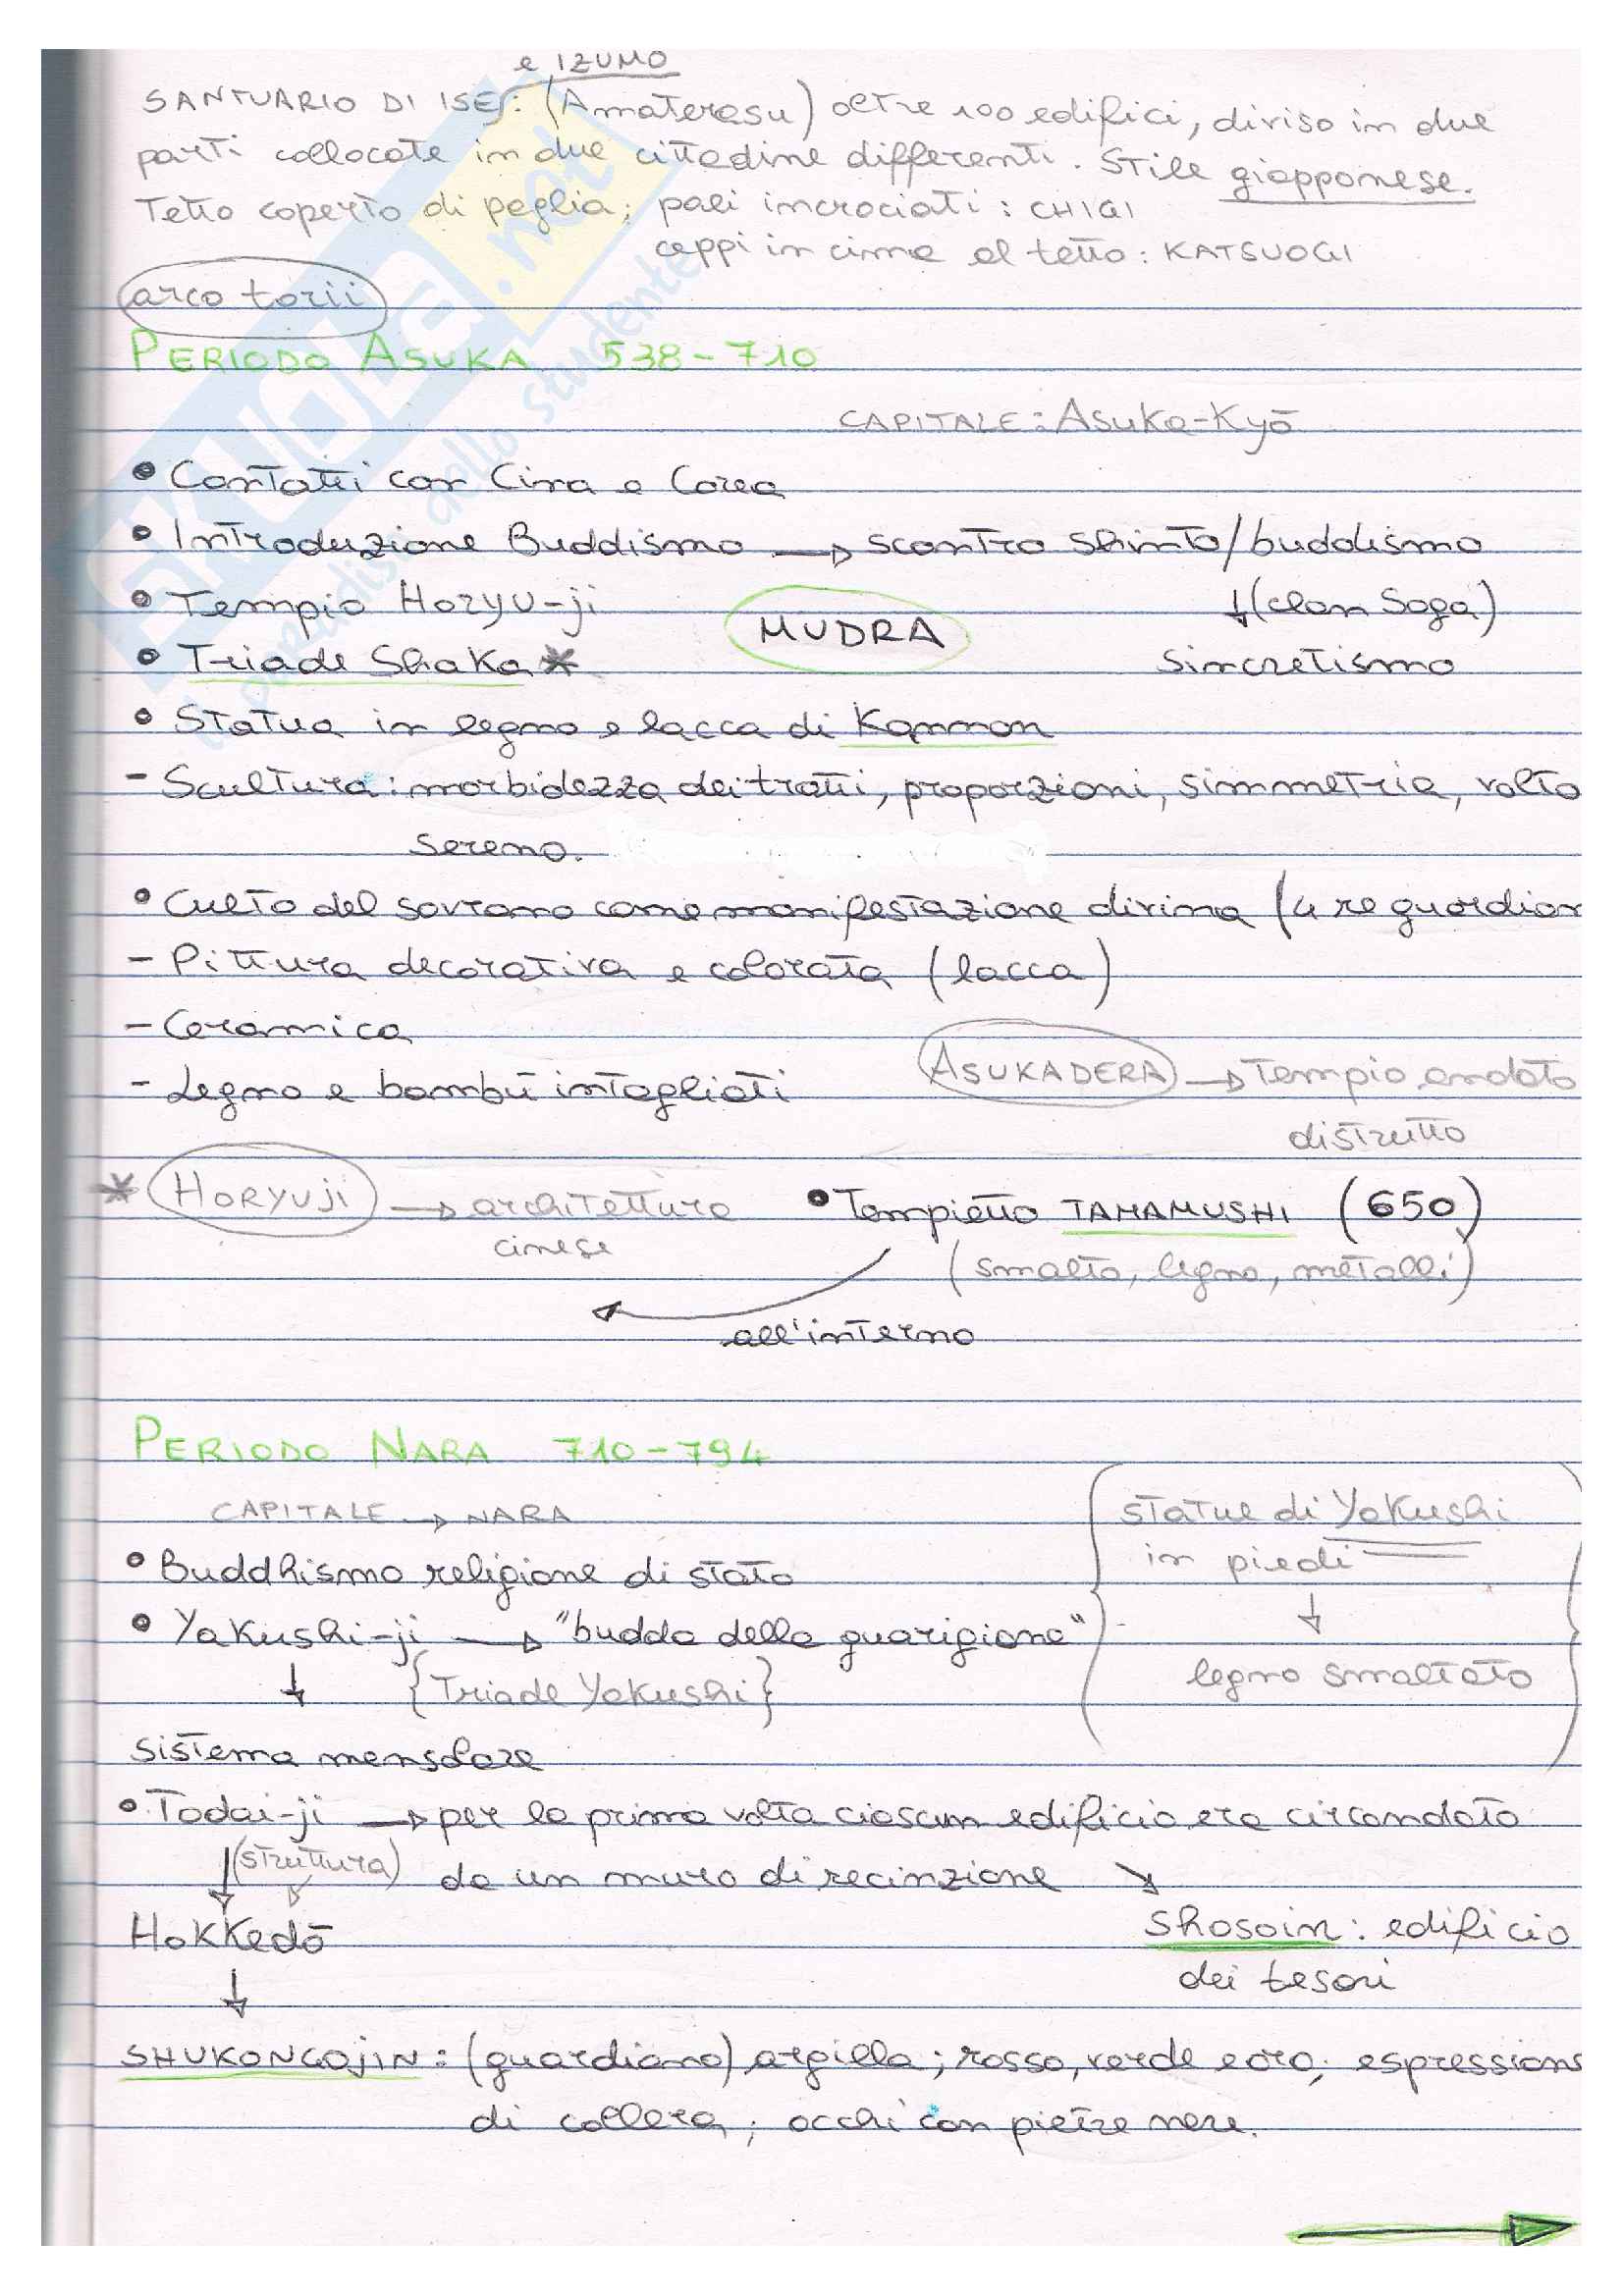 e IZUMO
SANTUARIO DI ISE: (Amaterasu) oltre 100 edifici, diviso in due
parti collocate in due cittadine differenti. Stile giapponese.
Tetto coperto di paglia; pali incrociati: CHIGI
ceppi in cima al tetto: KATSUOGI
arco torii
PERIODO ASUKA 538-710
CAPITALE: Asuka-Kyō
• Contatti con Cina e Corea
• Introduzione Buddismo → scontro shinto/buddismo
• Tempio Horyu-ji
↓ (clan Soga)
MUDRA
• Triade Shaka *
sincretismo
• Statua in legno e lacca di Kannon
- Scultura: morbidezza dei tratti, proporzioni, simmetria, volto
sereno.
• Culto del sovrano come manifestazione divina (4 re guardian
- Pittura decorativa e colorata (lacca)
- Ceramica
ASUKADERA → Tempio andato
distrutto
- Legno e bambù intagliati
* HORYUJI → architettura
cinese
• Tempietto TAMAMUSHI (650)
(smalto, legno, metalli)
all'interno
PERIODO NARA 710-794
CAPITALE → NARA
statue di Yakushi
in piedi
↓
legno smaltato
• Buddhismo religione di stato
• Yakushi-ji → "budda della guarigione"
↓ {Triade Yakushi}
sistema mensolare
• Todai-ji → per la prima volta ciascun edificio era circondato
↓ (struttura) da un muro di recinzione ↘
Hokkedō
Shosoin: edificio
dei tesori
↓
SHUKONGOJIN: (guardiano) argilla; rosso, verde e oro; espressione
di collera; occhi con pietre nere.
SKUOLA.net
il paradiso dello studente